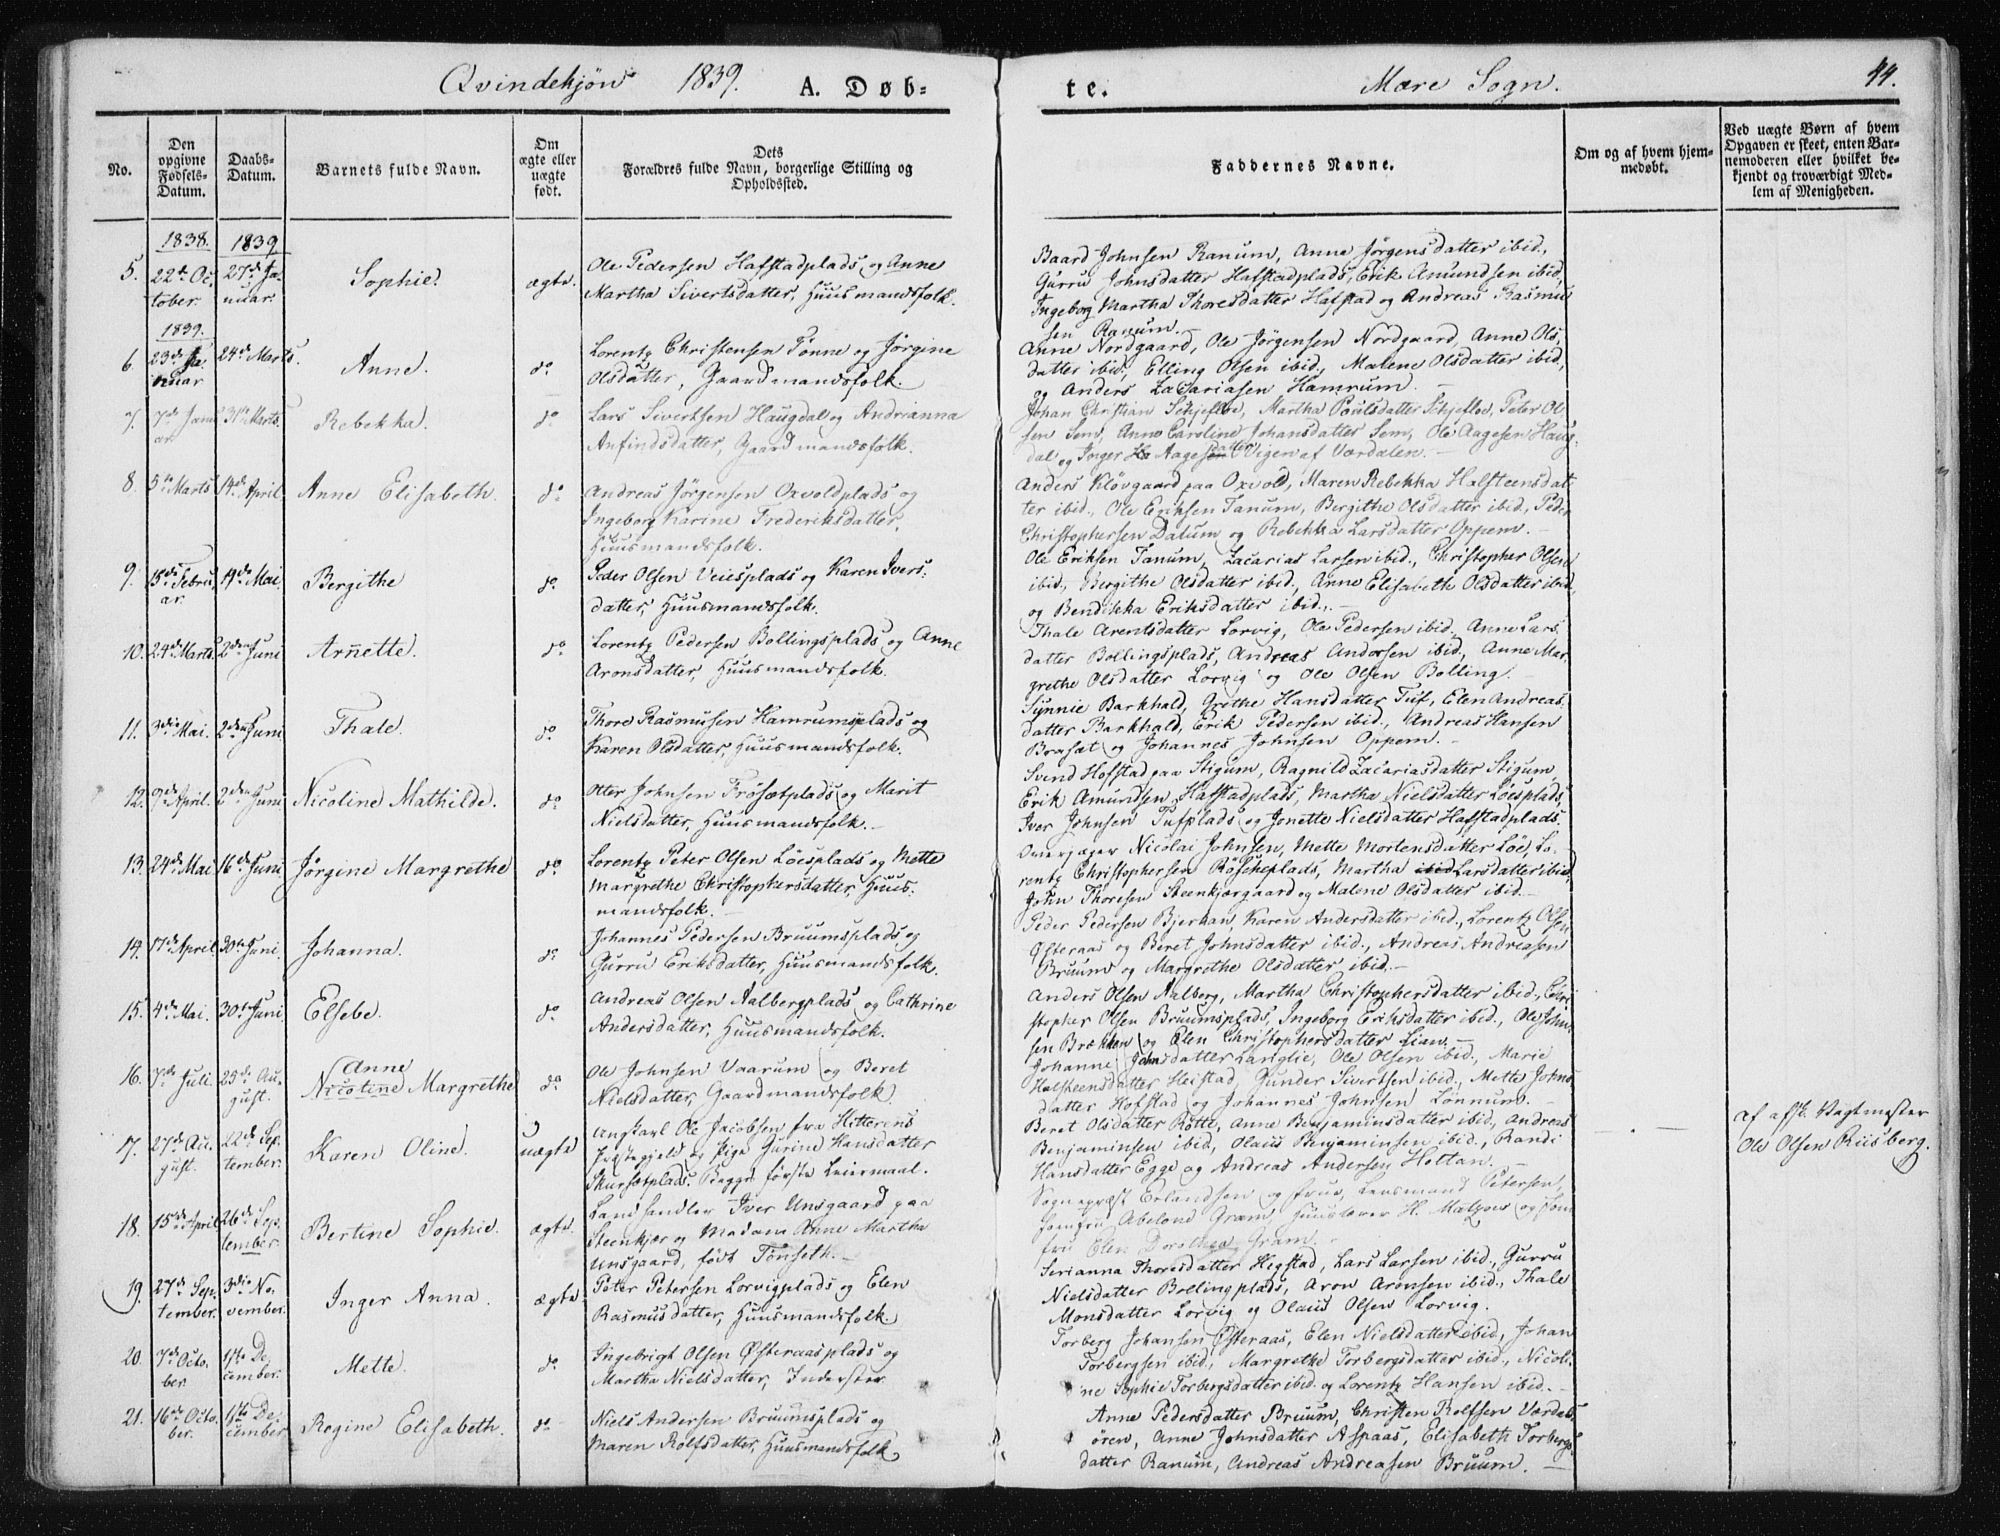 Qvindekjøn 1839. A. Døb-
te. Mære Sogn. 44.
No.
Den opgivne Fødsels-Datum.
Daabs-Datum.
Barnets fulde Navn.
Om ægte eller uægte født.
Dets Forældres fulde Navn, borgerlige Stilling og Opholdssted.
Faddernes Navne.
Om og af hvem hjem-medøbt.
Ved uægte Børn af hvem Opgaven er skeet, enten Bar-nemoderen eller hvilket be-kjendt og troværdigt Med-lem af Menigheden.
1838. 1839
5. 22de Oc-tober. 27de Ja-nuar. Sophie. ægte.
Ole Pedersen Hafstadplads og Anne
Martha Sivertsdatter, Huusmandsfolk.
Baard Johnsen Ranum, Anne Jörgensdatter ibid.,
Gurru Johnsdatter Hafstadplads, Erik Amundsen ibid,
Ingeborg Martha Thoresdatter Hafstad og Andreas Rasmu
sen Ranum.
1839.
6. 23de Ja-nuar 24de Marts. Anne. do
Lorentz Christensen Tønne og Jørgine
Olsdatter, Gaardmandsfolk.
Anne Nordgaard, Ole Jörgensen Nordgaard, Anne Ols-
datter ibid, Elling Olsen ibid, Malene Olsdatter ibid,
og Anders Zacariasen Hamrum.
7. 7de Janu-ar 31te Marts. Rebekka. do
Lars Sivertsen Haugdal og Andrianna
Anfindsdatter, Gaardmandsfolk.
Johan Christian Schjefloe, Martha Poulsdatter Schjefloe, Peter Ol-
sen Sem, Anne Caroline Johansdatter Sem, Ole Aagesen Haug-
dal og Inger Aagesdatter Vigen af Værdalen.
8. 5te Marts 14de April Anne Elisabeth. do
Andreas Jörgensen Oxvoldplads og
Ingeborg Karine Frederiksdatter,
Huusmandsfolk.
Anders Klövgaard paa Oxvold, Maren Rebekka Halsteensdat-
ter ibid., Ole Eriksen Tanum, Bergithe Olsdatter ibid., Peder
Christophersen Dalum og Rebekka Larsdatter Oppem.
9. 15de Febru-ar. 19de Mai Bergithe do
Peder Olsen Veiesplads og Karen Ivers-
datter, Huusmandsfolk.
Ole Eriksen Tanum, Zacarias Larsen ibid., Christopher Olsen
ibid., Bergithe Olsdatter ibid., Anne Elisabeth Olsdatter ibid,
og Bendikka Eriksdatter ibid.
10. 24de Marts 2den Juni Arnette. do
Lorentz Pedersen Bollingsplads og Anne
Aronsdatter, Huusmandsfolk.
Thale Arentsdatter Lorvig, Ole Pedersen ibid., Anne Lars
datter Bollingsplads, Andreas Andersen ibid., Anne Mar-
grethe Olsdatter Lorvig og Ole Olsen Bolling.
11. 3die Mai. 2den Juni Thale. do
Thore Rasmusen Hamrumsplads og
Karen Olsdatter, Huusmandsfolk.
Synnie Barkhald, Grethe Hansdatter Tuf, Elen Andreas-
datter Barkhald, Erik Pedersen ibid., Andreas Hansen
Brasæt og Johannes Johnsen Oppem.
12. 9de April. 2den Juni Nicoline Mathilde. do
Otter Johnsen Frösætplads og Marit
Nielsdatter, Huusmandsfolk.
Svend Hofstad paa Stigum, Ragnild Zacariasdatter Stigum,
Erik Amundsen Hafstadplads, Martha Nielsdatter Löesplads,
Iver Johnsen Tufplads og Jonette Nielsdatter Hafstadplads.
13. 24de Mai 16de Juni Jørgine Margrethe do
Lorentz Peter Olsen Löesplads og Mette
Margrethe Christophersdatter, Huus-
mandsfolk.
Overjæger Nicolai Johnsen, Mette Mortensdatter Löe, Lo-
rentz Christophersen Röskeplads, Martha Larsdatter ibid,
John Thoresen Steenkjærgaard og Malene Olsdatter ibid.
14. 17de April 30te Juni. Johanna. do
Johannes Pedersen Bruumsplads og
Gurru Eriksdatter, Huusmandsfolk.
Peder Pedersen Bjerkan, Karen Andersdatter ibid., Lorentz Olsen
Østeraas og Beret Johnsdatter ibid., Andreas Andreasen
Bruum og Margrethe Olsdatter ibid.
15. 4de Mai. 30te Juni. Elsebe. do
Andreas Olsen Aalbergplads og Cathrine
Andersdatter, Huusmandsfolk.
Anders Olsen Aalberg, Martha Christophersdatter ibid., Chri
stopher Olsen Bruumsplads, Ingeborg Eriksdatter ibid., Ole John-
sen Brækken og Elen Christophersdatter Lian.
16. 7de Juli. 25de Au-gust. Anne
Nicoline Margrethe do
Ole Johnsen Vaarum og Beret
Nielsdatter, Gaardmandsfolk.
Johanne Johnsdatter Langlie, Ole Olsen ibid., Marie
Halsteensdatter Heistad, Gunder Sivertsen ibid., Mette Johns
datter Hofstad og Johannes Johnsen Lönnum.
17. 27de Au-gust. 22de Sep-tember. Karen Oline. uægte
Ungkarl Ole Jacobsen fra Hitterens
Præstegjeld og Pige Gurine Hansdatter
Skursætplads. Begges første Leiermaal.
Beret Olsdatter Rötte, Anne Benjaminsdatter ibid, Andreas
Benjaminsen ibid, Olaus Benjaminsen ibid., Randi
Hansdatter Egge og Andreas Andersen Hottan.
af afsk. Vagtmester
Ole Olsen Riisberg.
18. 15de April 26de Sep-tember. Bertine Sophie. ægte.
Landhandler Iver Unsgaard paa
Steenkjær og Madam Anne Martha
Unsgaard, født Tönseth.
Sognepræst Erlandsen og Frue, Lensmand Petersen,
Jomfru Abelone Gram, Huuslærer H. Matzow og Jom
fru Elen Dorothea Gram.
19. 27de Sep-tember. 3die No-vember. Inger Anna. ægte
Peter Petersen Lorvigplads og Elen
Rasmusdatter, Huusmandsfolk.
Serianna Thoresdatter Hegstad, Lars Larsen ibid., Gurru
Nielsdatter Bollingplads, Aron Aronsen ibid., Thale
Monsdatter Lorvig og Olaus Olsen Lorvig.
20. 7de Octo-ber. 1ste De-cember. Mette. do
Ingebrigt Olsen Østeraasplads og
Martha Nielsdatter, Inderster
Torberg Johansen Østeraas, Elen Nielsdatter ibid, Johan
Torbergsen ibid., Margrethe Torbergsdatter ibid., Nicoli-
ne Sophie Torbergsdatter ibid. og Lorentz Hansen ibid.
21. 16de Octo-ber. 1ste De-cember Regine Elisabeth. do
Niels Andersen Bruumsplads og
Maren Rolfsdatter, Huusmandsfolk.
Anne Pedersdatter Bruum, Christen Rolfsen Værdals
ören, Anne Johnsdatter Aspaas, Elisabeth Torbergs
datter Ranum, Andreas Andreasen Bruum.